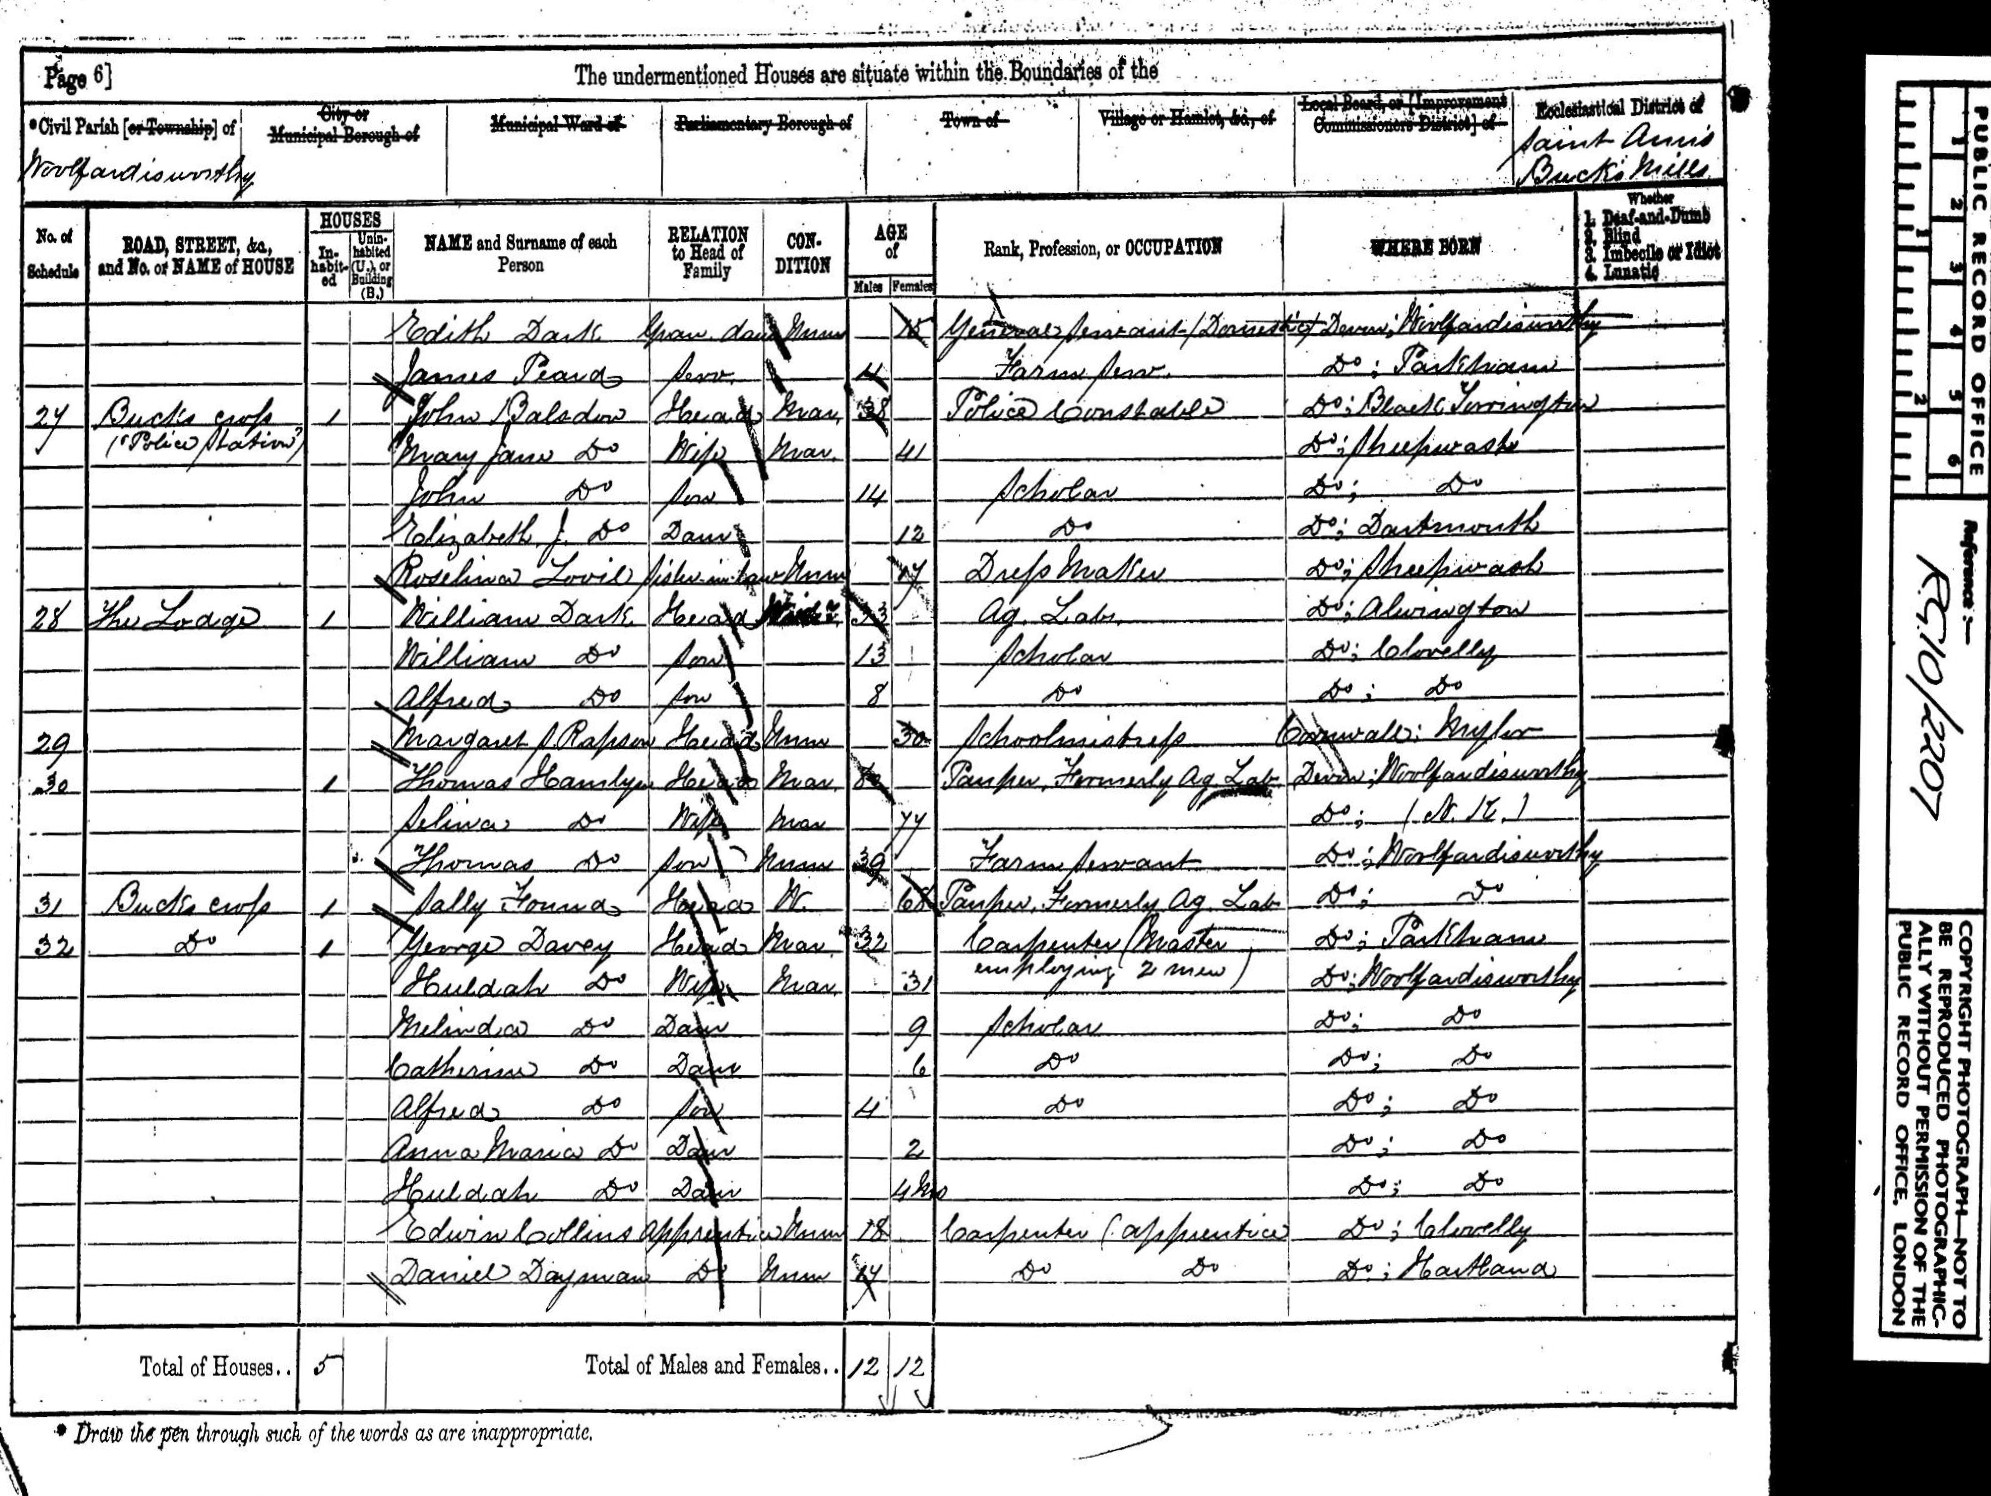 Page 6]
The undermentioned Houses are situate within the Boundaries of the
*Civil Parish [or Township] of
City or Municipal Borough of
Municipal Ward of
Parliamentary Borough of
Town of
Village or Hamlet, &c., of
Local Board, or [Improvement Commissioners District] of
Ecclesiastical District of
Woolfardisworthy
Saint Ann's
Buck's Mills
No. of Schedule
ROAD, STREET, &c., and No. or NAME of HOUSE
HOUSES
Inhabited
Uninhabited (U.), or Building (B.)
NAME and Surname of each Person
RELATION to Head of Family
CONDITION
AGE of
Males
Females
Rank, Profession, or OCCUPATION
WHERE BORN
Whether
1. Deaf-and-Dumb
2. Blind
3. Imbecile or Idiot
4. Lunatic
Edith Dark Gran. daur Unm 15 General Servant (Domestic) Devon; Woolfardisworthy
James Peard Serv. Farm Serv. Do; Parkham
27 Bucks Cross 1 John Balsdon Head Mar. 38 Police Constable Do; Black Torrington
("Police Station") Mary Jane Do Wife Mar. 41 Do; Sheepwash
John Do Son 14 Scholar Do; Do
Elizabeth J. Do Daur 12 Do Do; Dartmouth
Roselina Lovil Sister-in-law Unm 17 Dress Maker Do; Sheepwash
28 The Lodge 1 William Dark Head Widr. Ag. Lab. Do; Alwington
William Do Son 13 Scholar Do; Clovelly
Alfred Do Son 8 Do Do; Do
29 Margaret S. Rapson Head Unm 30 Schoolmistress Cornwall; Mylor
30 1 Thomas Hamlyn Head Mar. Pauper, Formerly Ag. Lab. Devon; Woolfardisworthy
Selina Do Wife Mar 77 Do; (N. K.)
Thomas Do Son Unm 39 Farm Servant Do; Woolfardisworthy
31 Bucks Cross 1 Sally Found Head W. 68 Pauper, Formerly Ag. Lab. Do; Do
32 Do 1 George Davey Head Mar. 32 Carpenter (Master Do; Parkham
employing 2 men)
Huldah Do Wife Mar. 31 Do; Woolfardisworthy
Melinda Do Daur 9 Scholar Do; Do
Catherine Do Daur 6 Do Do; Do
Alfred Do Son 4 Do Do; Do
Anna Maria Do Daur 2 Do; Do
Huldah Do Daur 4 Mo Do; Do
Edwin Collins Apprentice Unm 18 Carpenter (apprentice Do; Clovelly
Daniel Dayman Do Unm 17 Do Do Do; Hartland
Total of Houses.. 5 Total of Males and Females.. 12 12
* Draw the pen through such of the words as are inappropriate.
PUBLIC RECORD OFFICE
1 2 3 4 5 6
1 2
Reference :—
R.G.10/2207
COPYRIGHT PHOTOGRAPH—NOT TO
BE REPRODUCED PHOTOGRAPHIC-
ALLY WITHOUT PERMISSION OF THE
PUBLIC RECORD OFFICE, LONDON